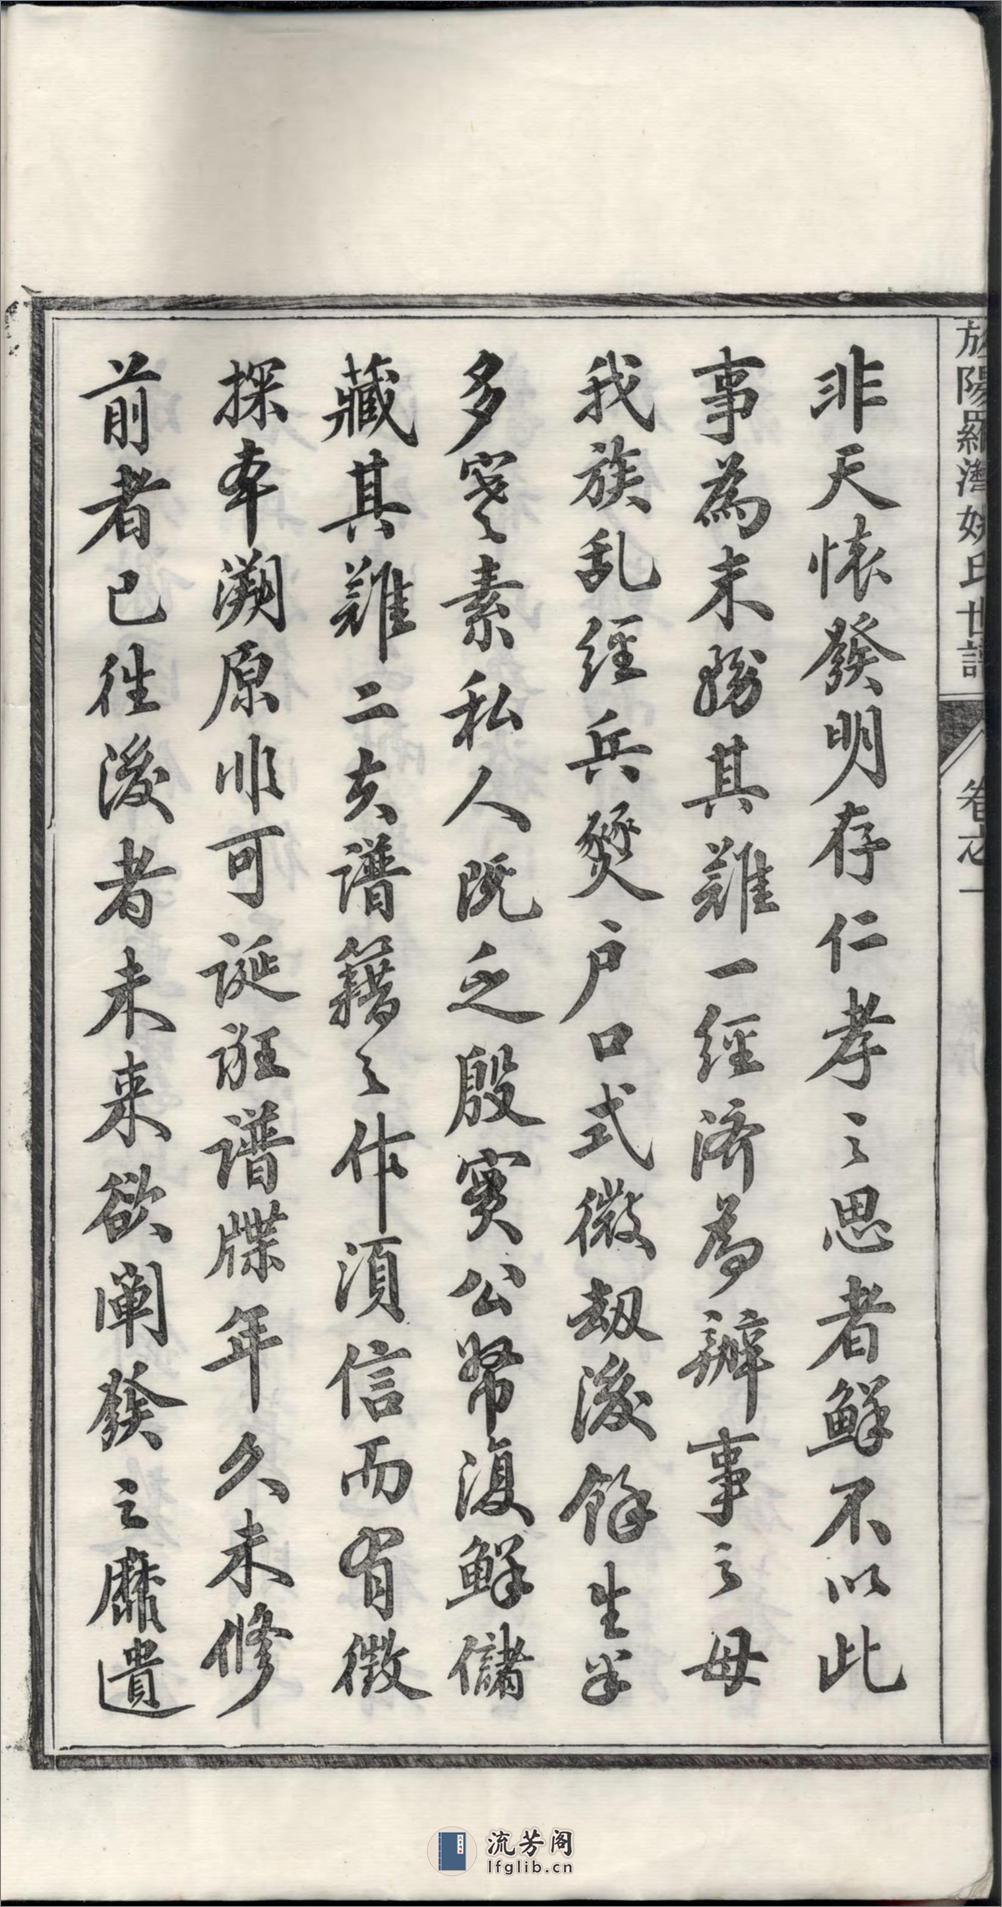 陽羅濟姚氏世譜
卷之一
非天懷發明存仁孝之思者鮮不以此
事為末務其難一經濟為辦事之母
我族乱經兵燹户口式微劫後餘生半
多寒〻素私人既乏殷实公帑復鮮儲
藏其難二夫谱籍〻作須信而有徵
探本溯原非可誕誑谱牒年久未修
前者已往後者未来欲阐發之靡遺
流芳阁
lfglib.cn